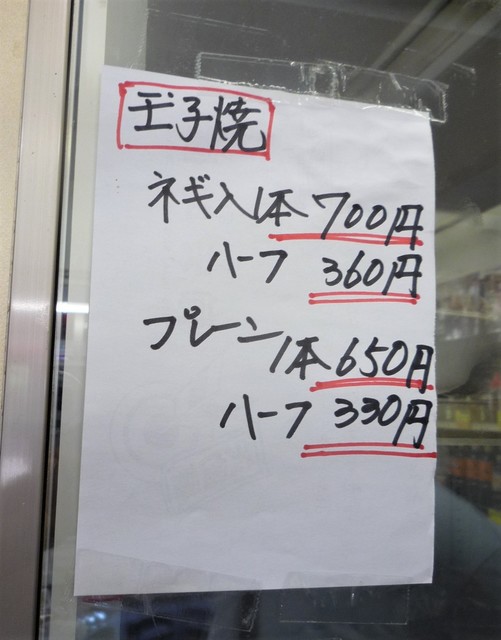 玉子焼
ネギ入1本700円
ハーフ 360円
プレーン
1本650円
ハーフ 330円